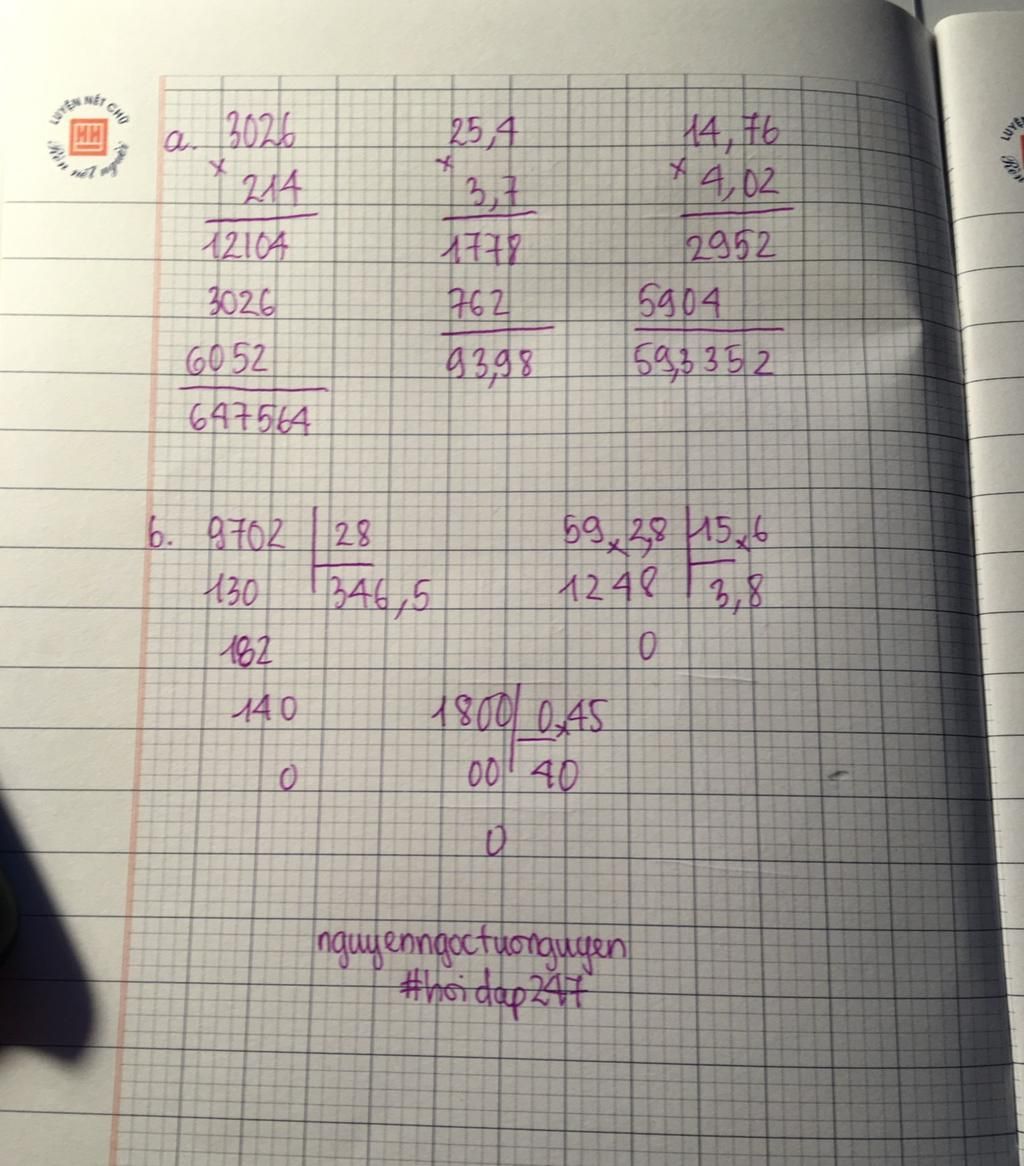 LUYỆN NÉT CHỮ
HH
Rèn nết người
a. 3026 25,4 14,76
× 214 × 3,7 × 4,02
12104 1778 2952
3026 762 5904
6052 93,98 59,3352
647564
b. 9702 28 59,2,8 15,6
130 346,5 1248 3,8
182 0
140 1800 0,45
0 00 40
0
nguyenngoctuonguyen
#hoidap247
LUYỆN
Rèn